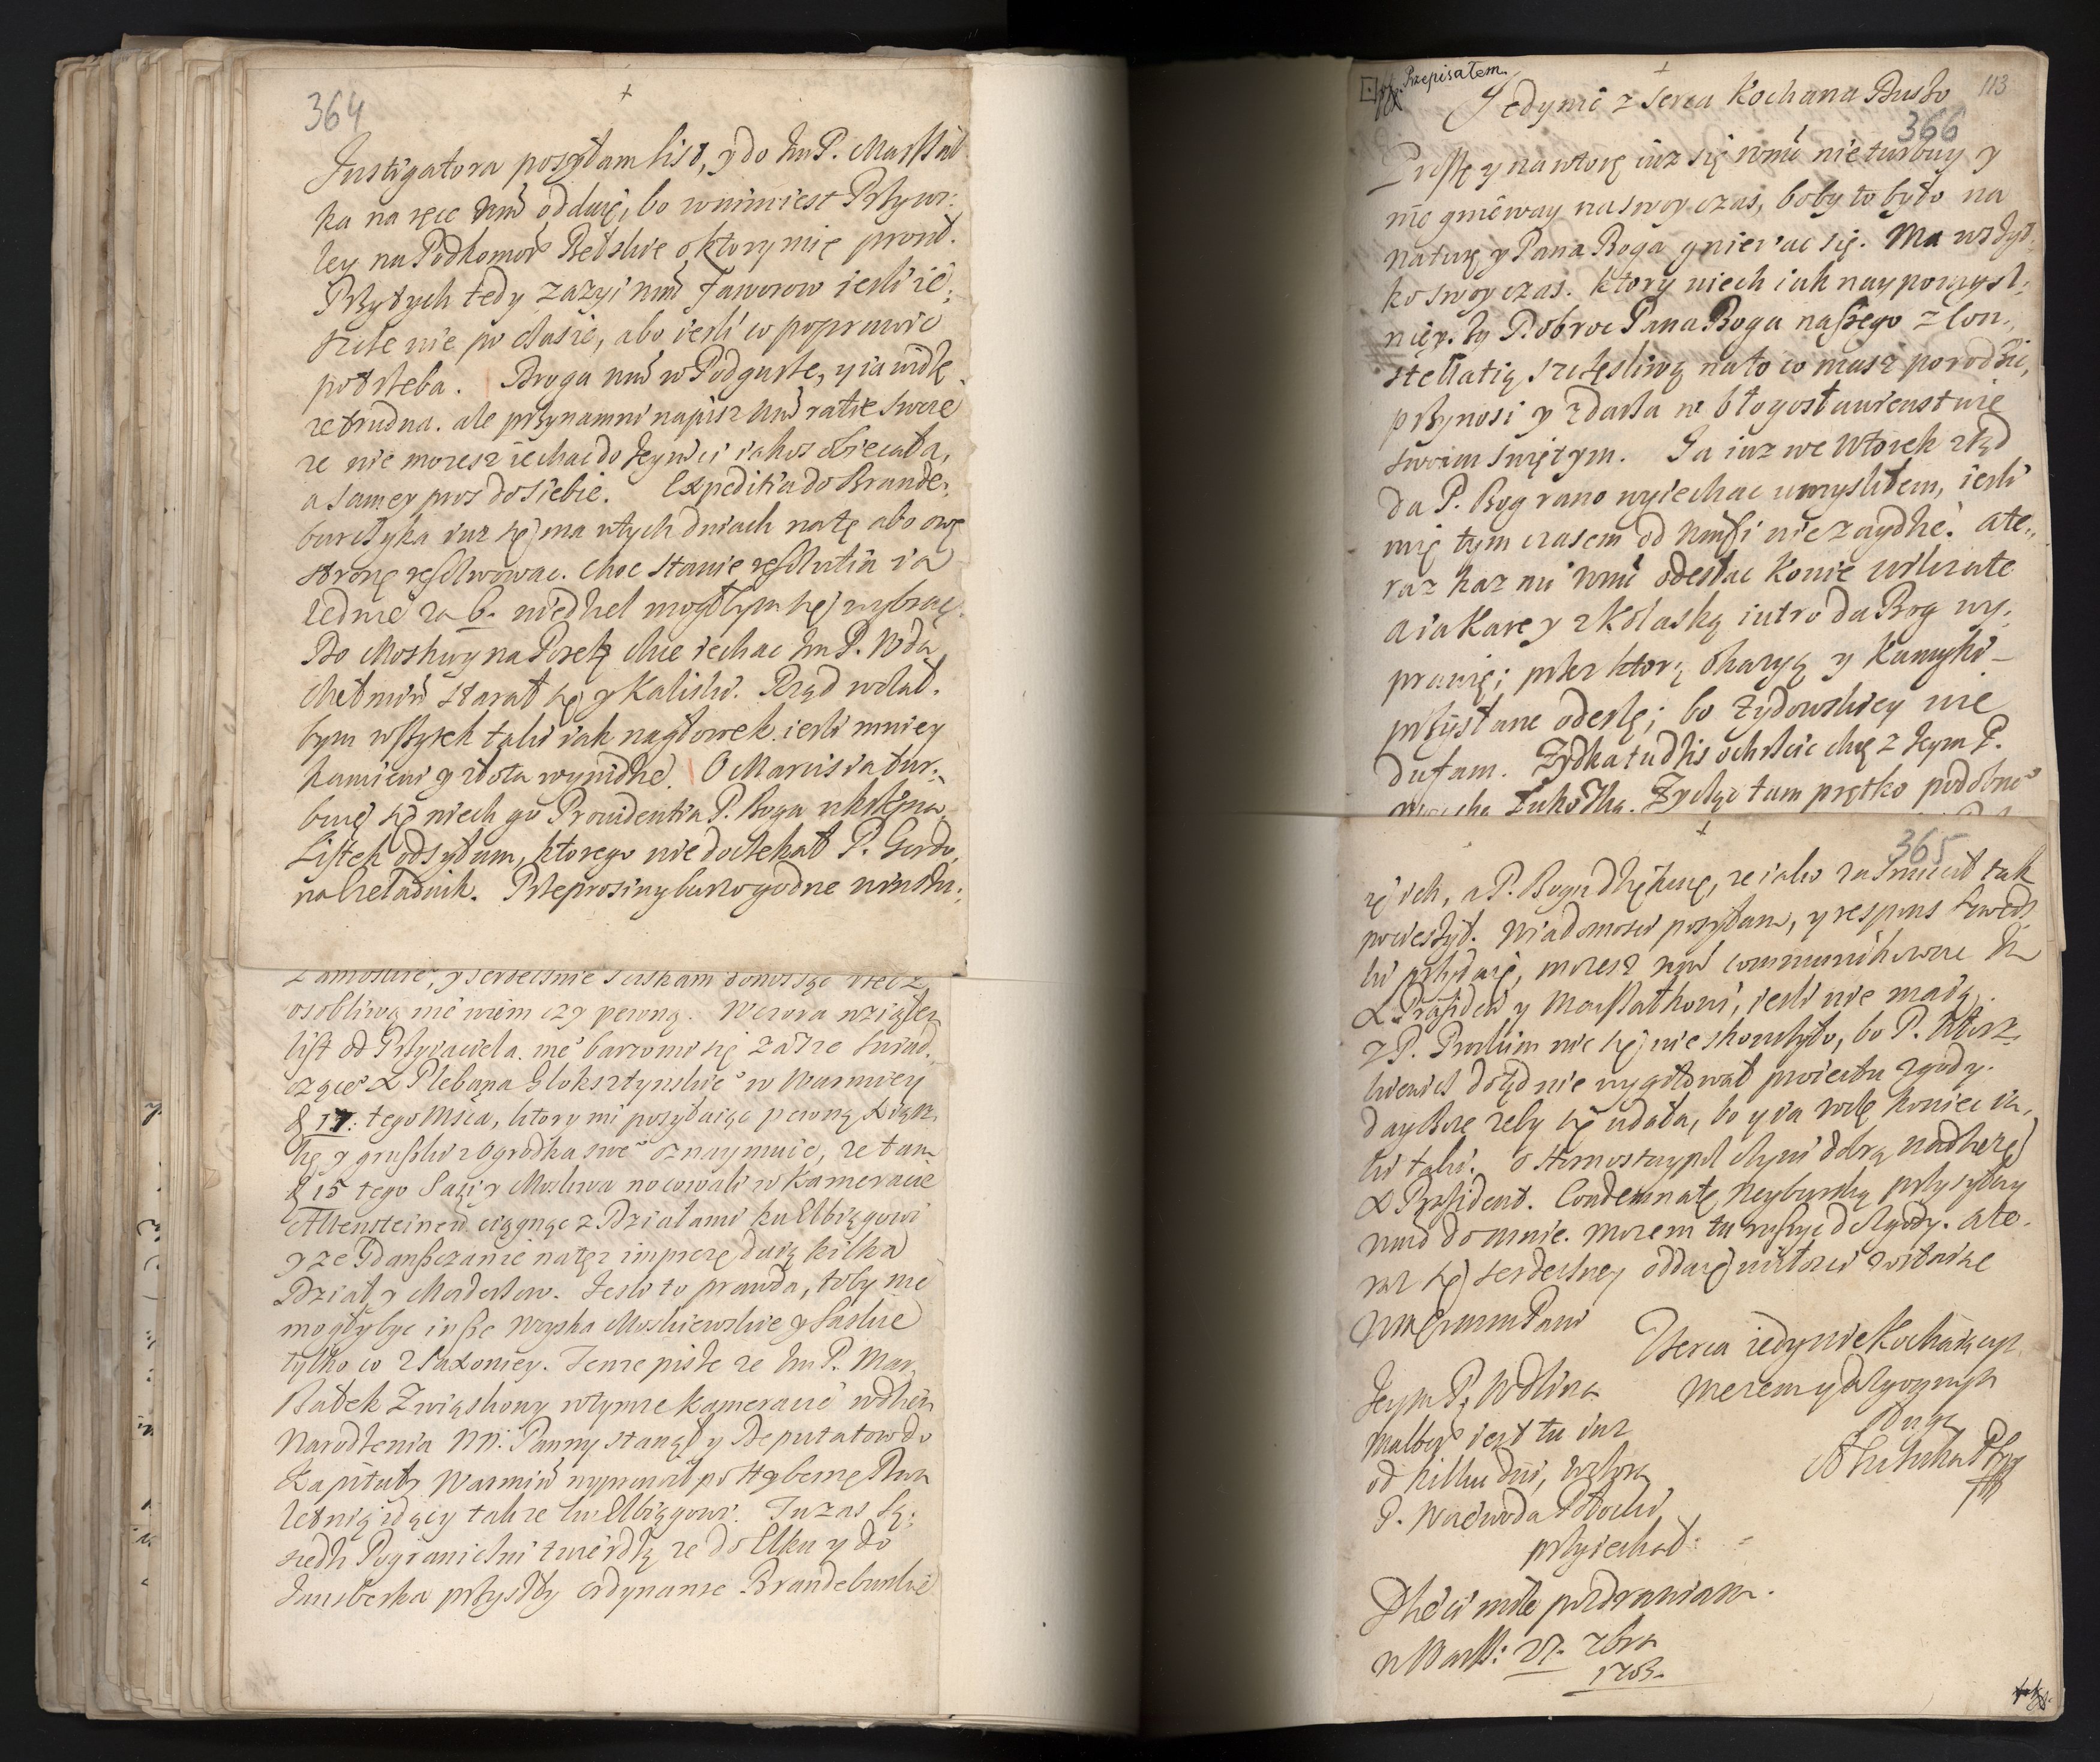 364
+
Instigatora posyłam list, y do Im P. Marszał
ka na ręce oddaię, bo w nim iest Przywi:
ley na Podkomor Bełskie o ktory mię prosił.
Przytych tedy zazyi Faworow iesli ie:
szcze nie po czasie, abo iesli co poprawic
potrzeba. Droga w Podgurze, y ia widzę
ze trudna. ale przynamni napisz ratie swoie
ze nie mozesz iechac do Jeymci iakos obiecała,
a samey pros do siebie. Expeditia do Brande:
burczyka iuz się ma w tych dniach na tę abo owę
stronę resolwowac. choc stanie resolutia ia
ledwie za 6. niedziel mogłbym się wybrac.
Do Moskwy na Posels chce iechac Im P. Wda
Chełmin starał się y Kaliski. Rząd wolał:
bym wszytek taki iak nagłowek iesli mniey
kamieni y złota wynidzie. O Marcisia tur:
buię się niech go Providentia P. Boga
Listek odsyłam, ktorego nie doczekał P. Gordo
na Czeladnik. Przeprosiny barzo godne
Zamoscie, y serdecznie sciskam donosząc rzecz
osobliwą nie wiem czy pewną. Wczora wziąłem
list od Przyiaciela. nie barzo mi się zdasze swiad
czące X Plebana Gloksztynskie w Warmiey
d 17: tego Msca, ktory mi posyłaiąc pewną xiąz
kę y gruszki z Ogrodka swe oznaymuie, ze tam
d 15 tego Sasi y Moskwa nocowali w Kameracie
Allensteinen ciągnąc z Działami ku Elbiągowi
y ze Gdanszczanie na tęz imprezę daią kilka
Dział y Mozdzerzow. Jesli to prawda, toby nie
mogły byc insze Woyska Moskiewskie y Saskie
tylko co z Saxoniey. Tenze pisze ze Im P. Mar
szałek Zwiąskowy w tymze Kameracie w dzien
Narodzenia NN: Panny stanął y Deputatow do
Kapituły Warmin wyprawił po Hybernę
letnią idący takze ku Elbiągowi. Tu zas Są:
siedzi Pograniczni twierdzą ze do Elku y do
Jansborka przyszły ordynanse Brandeburskie
Przepisałem.
+
113
Jedynie z serca Kochana Duszo
366
Proszę y na wtorę iuz się nie turbuy y
nie gnieway na swoy czas, boby to było na
naturę y Pana Boga gniewac się. Ma wszyt
ko swoy czas. ktory niech iak naypomysl:
niey. by P. dobroc Pana Boga naszego z con:
stellatią szczęsliwą na to co masz porodzic,
przynosi y zdarza w błogosławienstwie
swoim swiętym. Ja iuz we Wtorek ztąd
da P. Bog rano wyiechac umysliłem, iesli
mię tym czasem od nie zaydzie. Ate:
raz kaz mi odesłac Konie wilczate
a ia Kare y z Kolaską iutro da Bog wy:
prawię; przez ktorą okazyą y Kamyki
przysłane odeslę; bo zydowskiey nie
dufam. Zydka tu dzis ochrscic chcę z Jeym P.
Zycząc tam prętko podobne
+
365
ię ich, a P. Bogu dziękuię, ze iako zasmucił tak
pocieszył. Wiadomosci posyłam, y respons Szwedz
ki przydaię, mozesz communikowac
X Prezident y Marszałkowi, iesli nie maią.
z P. nic się nie skonczyło, bo P.
dotąd nie wygotował proiectu zgody.
day Boze zeby się udała, bo y ia wolę koniec ia:
ki taki. o Homostaypol czyni dobrą nadzieię
X Prezident. Condemnatę Neyburską przysyłay
do mnie. mozem tu ruszyc do zgody. Ate:
raz się serdeczney oddaię miłosci zostaiąc
Serca iedynie Kochaiącym
Mezem y dozywotnym
sługą
Jeym P. Wdzina
Malbor iest tu iuz
od kilku dni, wczora
P. Woiewoda Potocki
przyiechał:
Dzieci mile pozdrawiam.
w Warsz: 27. 7bra
1703.